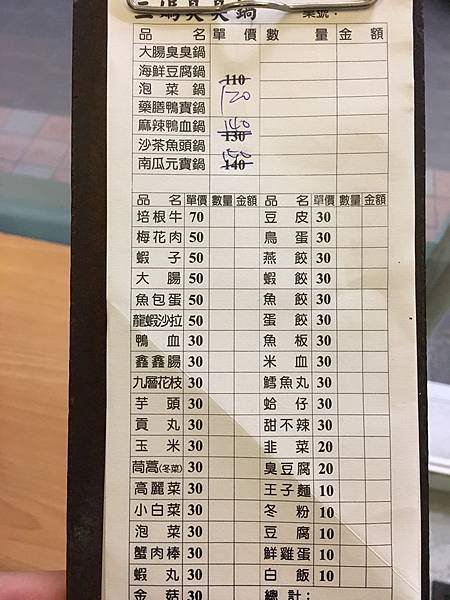 三媽臭臭鍋 桌號:
品名 單價 數量 金額
大腸臭臭鍋
海鮮豆腐鍋 110
泡菜鍋 120
藥膳鴨寶鍋
麻辣鴨血鍋 140 130
沙茶魚頭鍋
南瓜元寶鍋 140
品名 單價 數量 金額 品名 單價 數量 金額
培根牛 70 豆皮 30
梅花肉 50 鳥蛋 30
蝦子 50 燕餃 30
大腸 50 蝦餃 30
魚包蛋 50 魚餃 30
龍蝦沙拉 50 蛋餃 30
鴨血 30 魚板 30
鑫鑫腸 30 米血 30
九層花枝 30 鱈魚丸 30
芋頭 30 蛤仔 30
貢丸 30 甜不辣 30
玉米 30 韭菜 20
茼蒿(冬菜) 30 臭豆腐 20
高麗菜 30 王子麵 10
小白菜 30 冬粉 10
泡菜 30 豆腐 10
蟹肉棒 30 鮮雞蛋 10
蝦丸 30 白飯 10
金菇 30 總計: